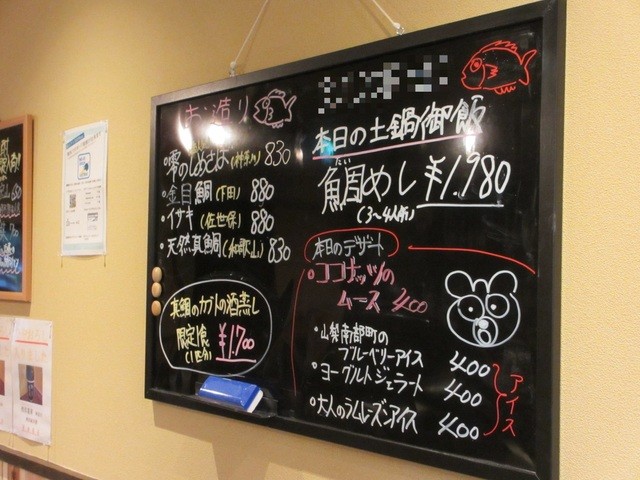 お造り
・雫のしめさば(神奈川) 830
・金目鯛(下田) 880
・イサキ(佐世保) 880
・天然真鯛(和歌山) 830
真鯛のカブトの酒蒸し
限定1食
(1匹分)
¥1.700
本日の土鍋御飯
だい
鯛めし ¥1.980
(3~4人前)
本日のデザート
・ココナッツの
ムース 400
・山梨南部町の
ブルーベリーアイス 400
・ヨーグルトジェラート 400
・大人のラムレーズンアイス 400
アイス